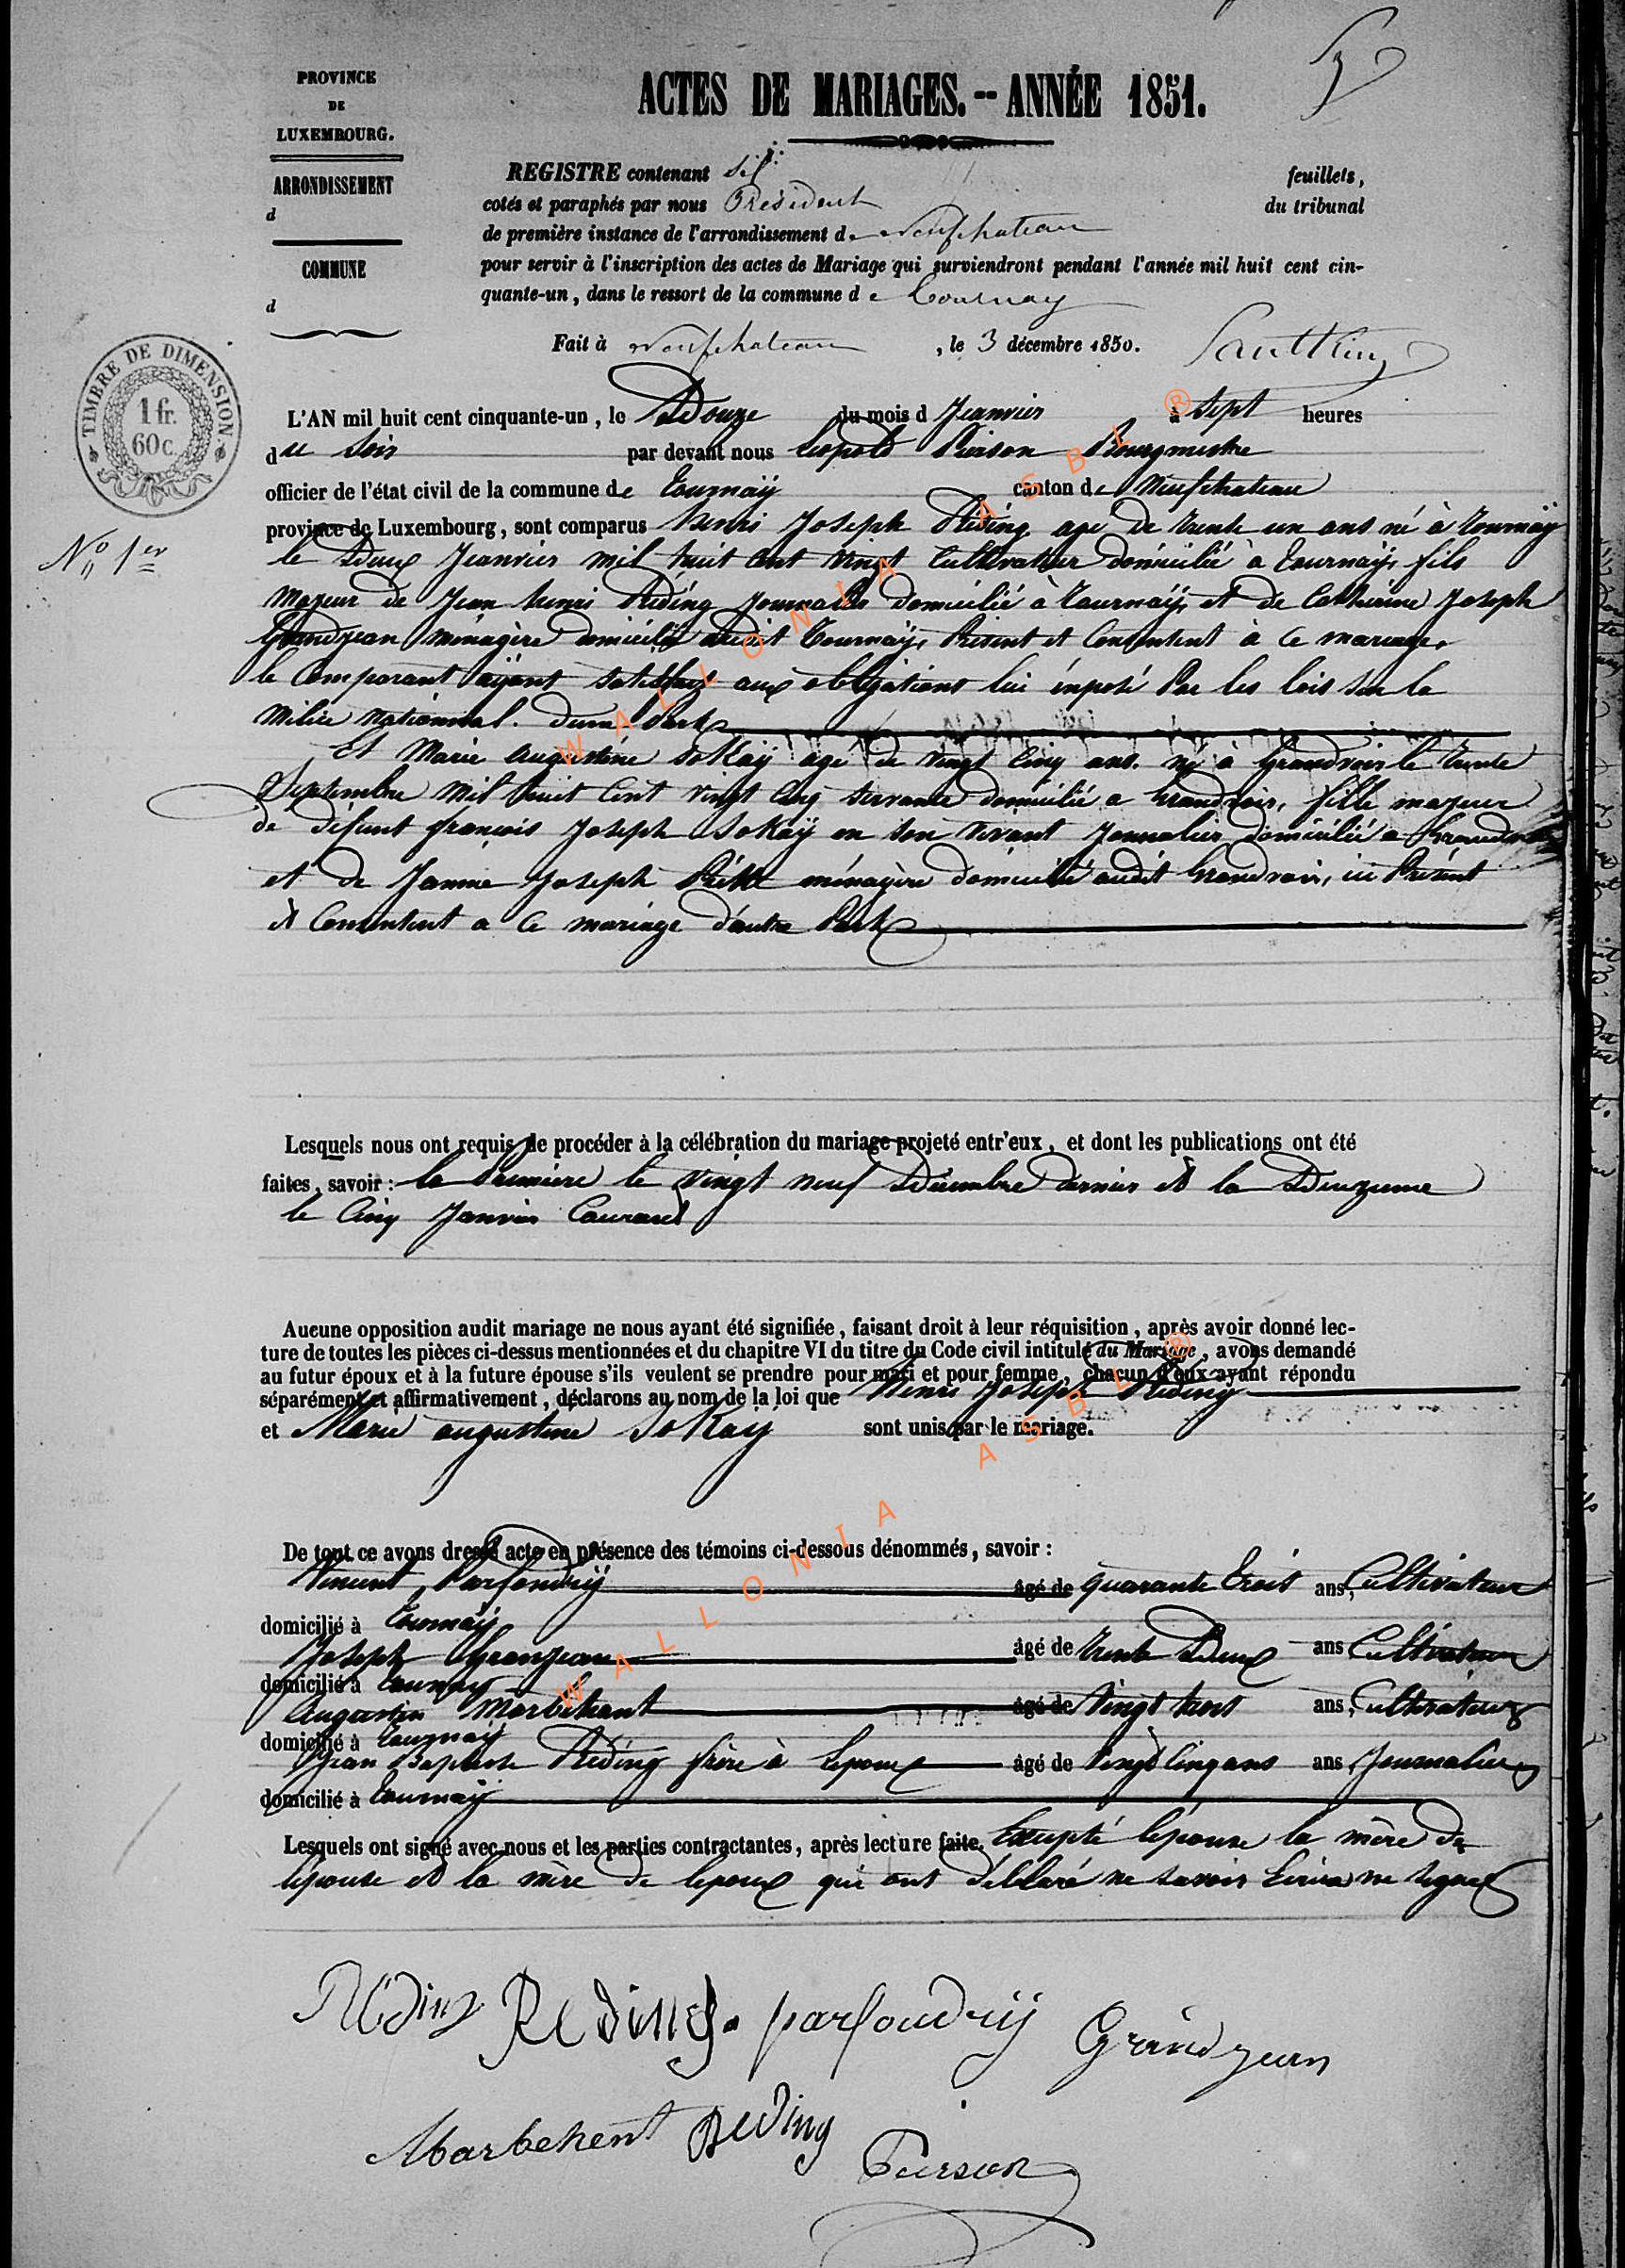 PROVINCE
DE
LUXEMBOURG.
ARRONDISSEMENT
d
COMMUNE
d
ACTES DE MARIAGES.-- ANNÉE 1851.
REGISTRE contenant six feuillets,
cotés et paraphés par nous Président du tribunal
de première instance de l'arrondissement de Neufchateau
pour servir à l'inscription des actes de Mariage qui surviendront pendant l'année mil huit cent cin-
quante-un, dans le ressort de la commune de Tournay
Fait à Neufchateau, le 3 décembre 1850.
TIMBRE DE DIMENSION
1 fr.
60 c.
N° 1er
L'AN mil huit cent cinquante-un, le Douze du mois d Jeanvier à sept heures
du soir par devant nous Léopold Pierson Bourgmestre
officier de l'état civil de la commune de Tournaÿ canton de Neufchateau
province de Luxembourg, sont comparus henri Joseph Réding agé de trente un ans né à Tournaÿ
le Deux Jeanvier mil huit cent vingt Cultivateur domicilié à Tournaÿ, fils
majeur de Jean henri Réding Journalier domicilié à Tournaÿ, et de Catherine Joseph
Grandjean ménagère domicilié audit Tournaÿ, Présent et Consentent à ce mariage,
le Comparant ayant satisfait aux obligations lui imposé Par les lois sur la
milice nationnal. d'une Part
Et Marie augustine Sokaÿ agé de vingt Cinq ans. né à Grandvoir le trente
Septembre mil huit Cent vingt Cinq servante domicilié a Grandvoir, fille majeur
de défunt françois Joseph Sokaÿ en son vivant Journalier domicilié a Grandvoir
et de Jeanne Joseph ménagère domicilié audit Grandvoir, ici Présent
et Consentent a ce mariage d'autre Part
Lesquels nous ont requis de procéder à la célébration du mariage projeté entr'eux, et dont les publications ont été
faites, savoir: la Première le vingt neuf Décembre dernier et la Deuzieme
le Cinq Janvier Courant
Aucune opposition audit mariage ne nous ayant été signifiée, faisant droit à leur réquisition, après avoir donné lec-
ture de toutes les pièces ci-dessus mentionnées et du chapitre VI du titre du Code civil intitulé du Mariage, avons demandé
au futur époux et à la future épouse s'ils veulent se prendre pour mari et pour femme, chacun d'eux ayant répondu
séparément et affirmativement, déclarons au nom de la loi que Henri Joseph Réding
et Marie augustine Sokay sont unis par le mariage.
De tout ce avons dressé acte en présence des témoins ci-dessous dénommés, savoir:
Vincent Parfondrÿ âgé de quarante trois ans, Cultivateur
domicilié à Tournaÿ
Joseph Granjean âgé de trente Deux ans Cultivateur
domicilié à Tournay
Augustin Marbehant âgé de vingt trois ans, Cultivateur
domicilié à Tournay
Jean Baptiste Réding frère à lepoux âgé de vingt Cinq ans ans, Journalier
domicilié à Tournaÿ
Lesquels ont signé avec nous et les parties contractantes, après lecture faite. Excepté lépouse la mère de
lépouse et la mère de lepoux qui ont déclaré ne savoir Ecrire ne signer
Réding Reding. parfondrÿ Grandjean
Marbehent Reding Pierson
WALLONIA ASBL ®
WALLONIA ASBL ®